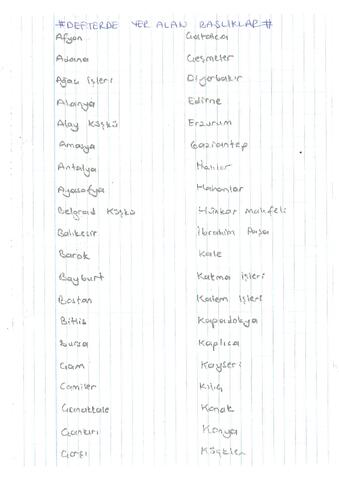 #DEFTERDE YER ALAN BAŞLIKLAR#
Afyon
Adana
Ağaç işleri
Alanya
Alay Köşkü
Amasya
Antalya
Ayasofya
Belgrad Köşkü
Balıkesir
Barok
Bayburt
Bostan
Bitlis
Bursa
Cam
Camiler
Çanakkale
Çankırı
Çarşı
Çatalca
Çeşmeler
Diyarbakır
Edirne
Erzurum
Gaziantep
Halılar
Hamamlar
Hünkar Mahfeli
İbrahim Paşa
Kale
Katma işleri
Kalem işleri
Kapadokya
Kaplıca
Kayseri
Kılıç
Konak
Konya
Köşkler